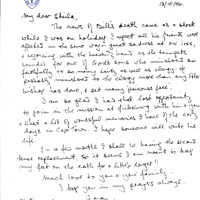 12/10/90
My dear Sheila,
The news of Bill's death came as a shock
while I was on holiday. I expect all his friends were
affected in the same way: great sadness at our loss,
& rejoicing with the heavenly host as the trumpets
sounded for one of God's sons who ministered so
faithfully to so many laity, as well as clergy &
probably ministered to the clergy more than any other
bishop has done, & set many persons free.
I am so glad I had that last opportunity
to join in the mission at Pickering with him & you
& What a lot of wonderful memories I have of the early
days in Cape Town. I hope someone will write his
life.
In a few months I shall be having the second
knee replacement. So it seems I am meant to keep
my feet on the earth for a little longer!
Much love to you & your family
I keep you in my prayers always,